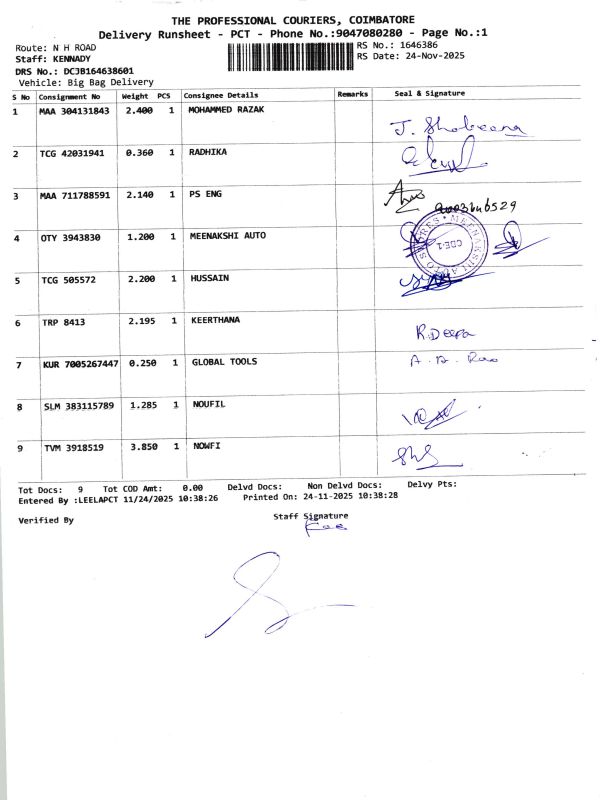 THE PROFESSIONAL COURIERS, COIMBATORE
Delivery Runsheet - PCT - Phone No.:9047080280 - Page No.:1
Route: N H ROAD
RS No.: 1646386
Staff: KENNADY
RS Date: 24-Nov-2025
DRS No.: DCJB164638601
Vehicle: Big Bag Delivery
S No Consignment No Weight PCS Consignee Details Remarks Seal & Signature
1 MAA 304131843 2.400 1 MOHAMMED RAZAK
J. Shabeena
2 TCG 42031941 0.360 1 RADHIKA
3 MAA 711788591 2.140 1 PS ENG
4 OTY 3943830 1.200 1 MEENAKSHI AUTO
MEENAKSHI AUTO
CBE-1
5 TCG 505572 2.200 1 HUSSAIN
6 TRP 8413 2.195 1 KEERTHANA
R.Deepa
7 KUR 7005267447 0.250 1 GLOBAL TOOLS
8 SLM 383115789 1.285 1 NOUFIL
9 TVM 3918519 3.850 1 NOWFI
Tot Docs: 9 Tot COD Amt: 0.00 Delvd Docs: Non Delvd Docs: Delvy Pts:
Entered By :LEELAPCT 11/24/2025 10:38:26 Printed On: 24-11-2025 10:38:28
Verified By
Staff Signature